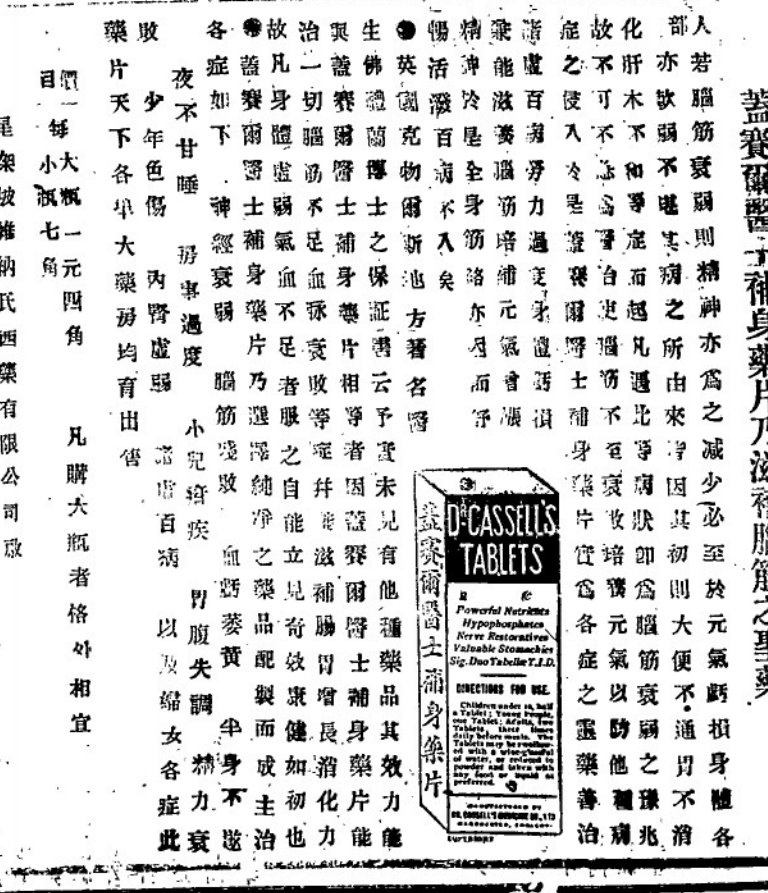 蓋賽爾醫士補身藥片乃滋補腦筋之聖藥
人若腦筋衰弱則精神亦為之減少必至於元氣虧損身體各
部亦軟弱不堪其病之所由來皆因其初則大便不通胃不消
化肝木不和等症而起凡遇此等病狀卽爲腦筋衰弱之預兆
故不可不急爲醫治使腦筋不至衰敗培養元氣以防他種病
症之侵入今是蓋賽爾醫士補身藥片實爲各症之靈藥善治
諸虛百病勞力過度身體虧損
兼能滋養腦筋培補元氣增漲
精神於是全身筋絡亦因而舒
暢活潑百病不入矣
●英國克物爾斯地方著名醫
生佛禮蘭傅士之保証書云予實未見有他種藥品其效力能
與蓋賽爾醫士補身藥片相等者因蓋賽爾醫士補身藥片能
治一切腦筋不足血脉衰敗等症幷能滋補腸胃增長消化力
故凡身體虛弱氣血不足者服之自能立見奇效康健如初也
●蓋賽爾醫士補身藥片乃選擇純淨之藥品配製而成主治
各症如下 神經衰弱 腦筋殘敗 血虧萎黃 半身不遂
夜不甘睡 房事過度 小兒疳疾 胃腹失調 精力衰
敗 少年色傷 內腎虛弱 諸虛百病 以及婦女各症此
藥片天下各埠大藥房均有出售
價 每大瓶一元四角 凡購大瓶者格外相宜
目 每小瓶七角
星架坡維納氏西藥有限公司啟
蓋賽爾醫士補身藥片
DR. CASSELL'S
TABLETS
Powerful Nutrients
Hypophosphates
Nerve Restoratives
Valuable Stomachics
Sig. Duo Tabellæ T.I.D.
DIRECTIONS FOR USE.
Children under 10, half
a Tablet; Young People,
one Tablet; Adults, two
Tablets, three times
daily before meals. The
Tablets may be swallow-
ed with a wine-glassful
of water, or reduced to
powder and taken with
any food or liquid as
preferred.
MANUFACTURED BY
DR. CASSELL'S MEDICINE CO., LTD
MANCHESTER, ENGLAND